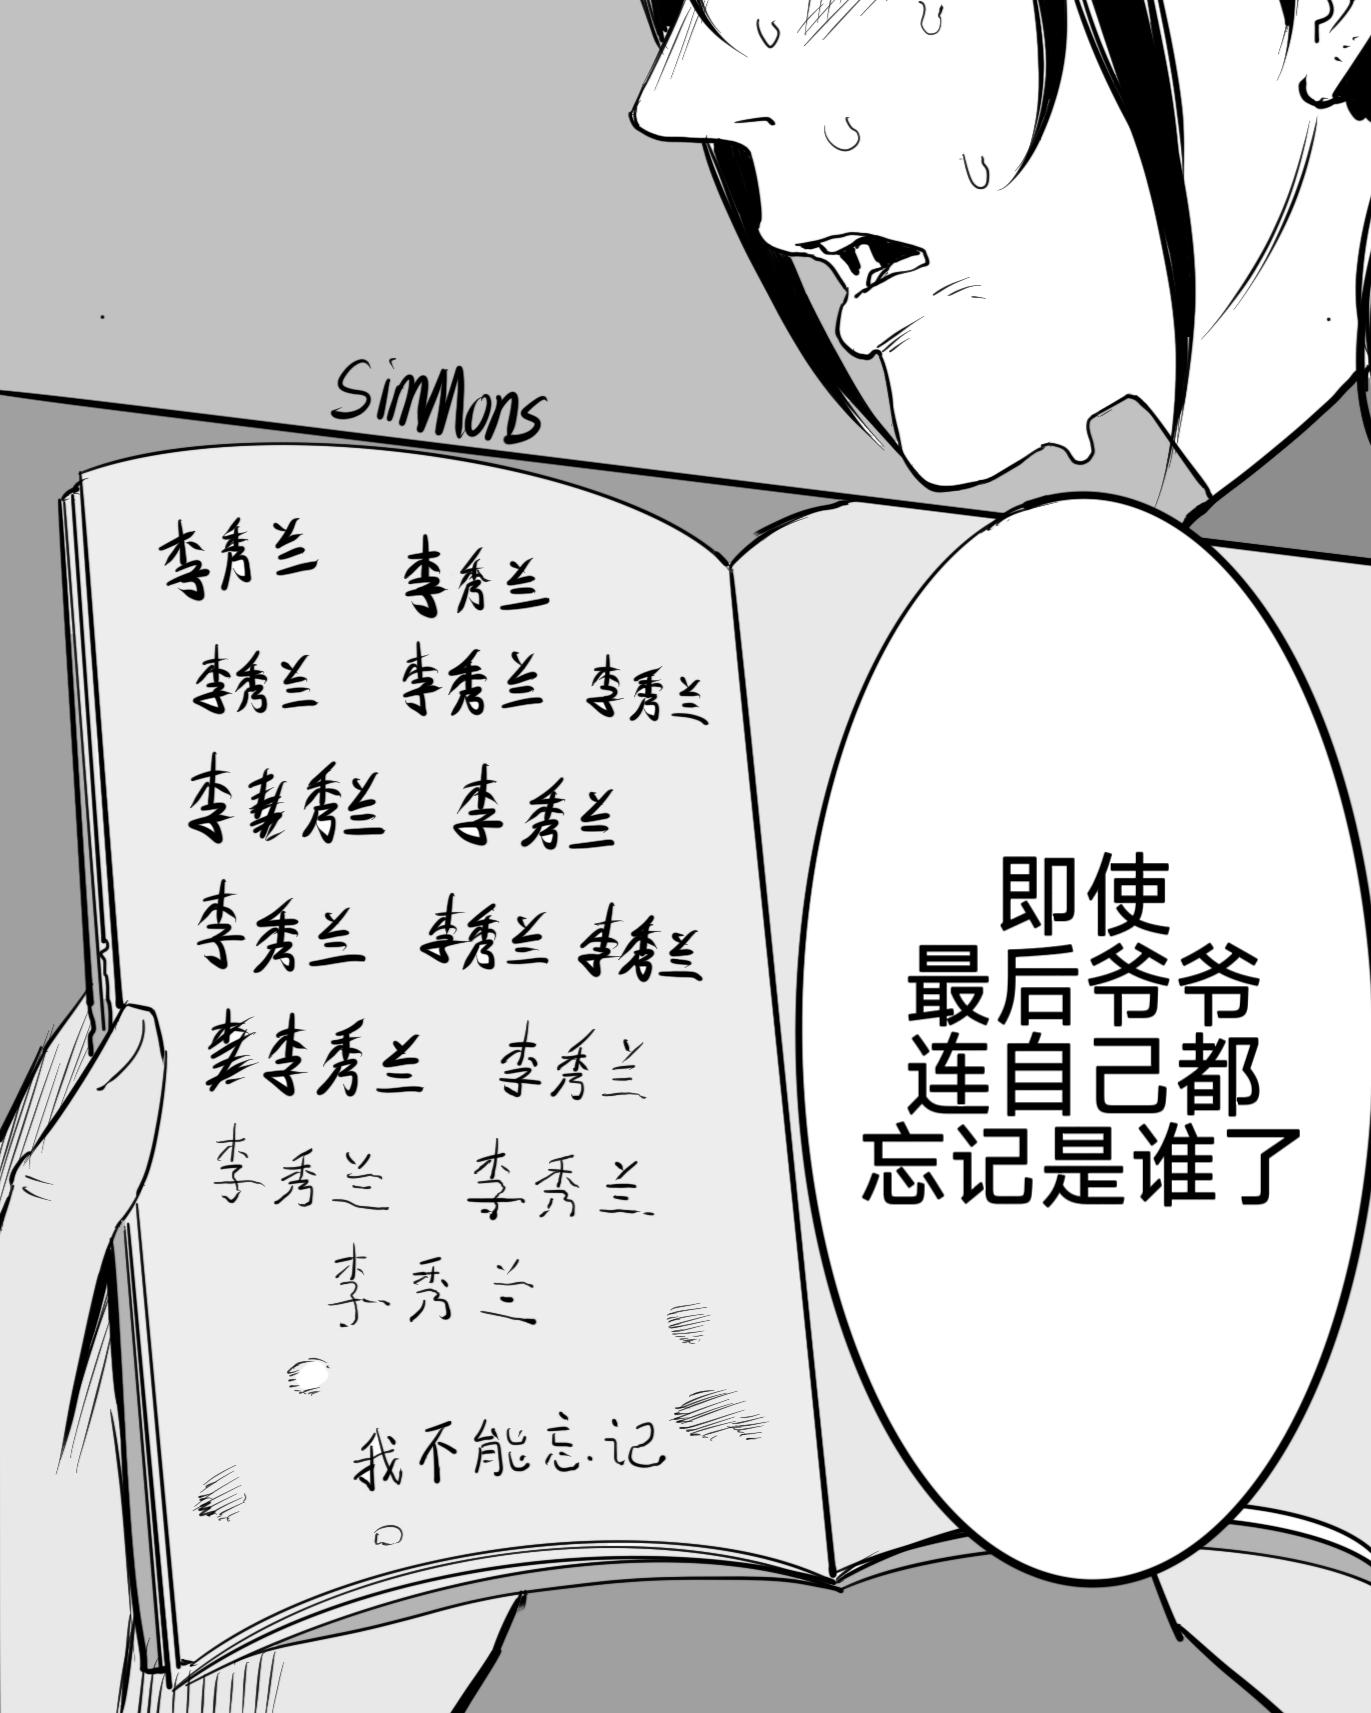 Simmons
李秀兰 李秀兰
李秀兰 李秀兰 李秀兰
李秀兰 李秀兰
李秀兰 李秀兰 李秀兰
李秀兰 李秀兰
李秀兰 李秀兰
李秀兰
我不能忘记
即使
最后爷爷
连自己都
忘记是谁了